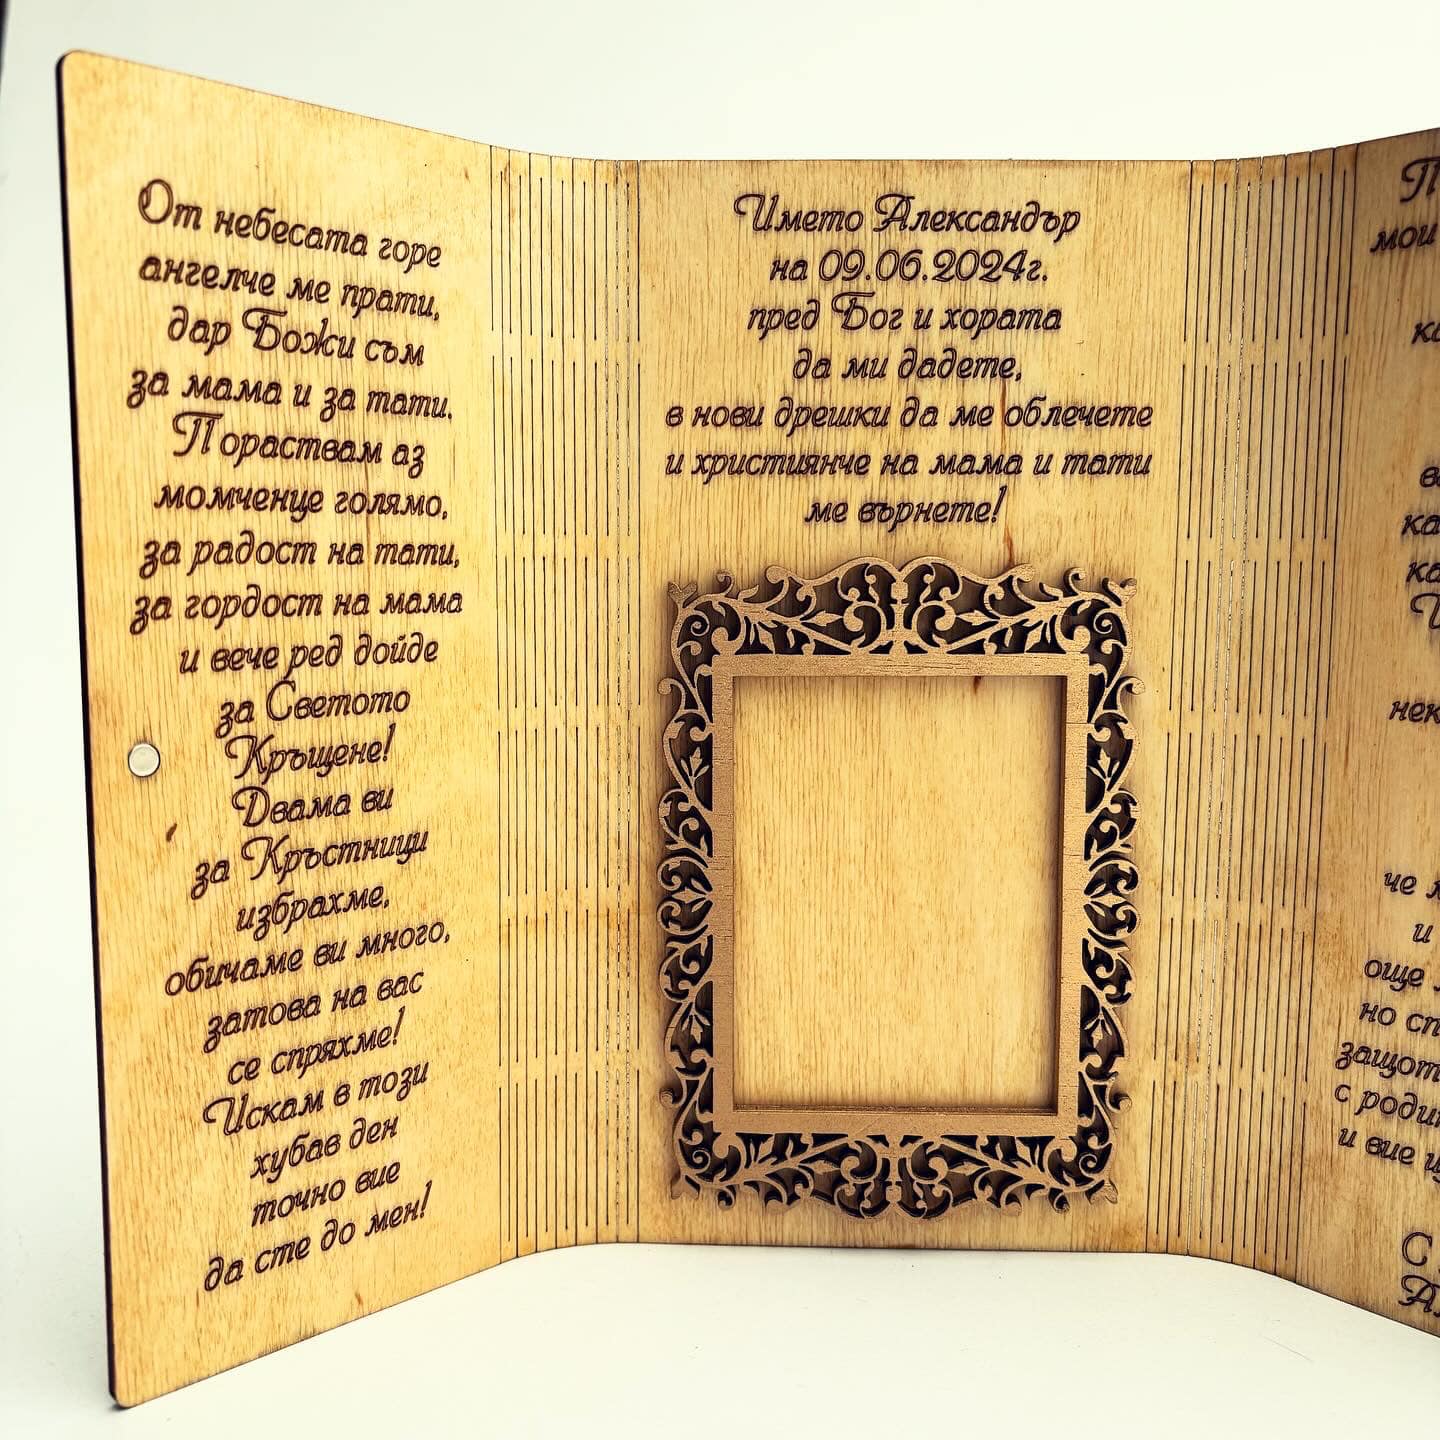 От небесата горе
ангелче ме прати,
дар Божи съм
за мама и за тати.
Пораствам аз
момченце голямо,
за радост на тати,
за гордост на мама
и вече ред дойде
за Светото
Кръщене!
Двама ви
за Кръстници
избрахме,
обичаме ви много,
затова на вас
се спряхме!
Искам в този
хубав ден
точно вие
да сте до мен!
Името Александър
на 09.06.2024г.
пред Бог и хората
да ми дадете,
в нови дрешки да ме облечете
и християнче на мама и тати
ме върнете!
мои
че
и
още
но
с
и вие
С